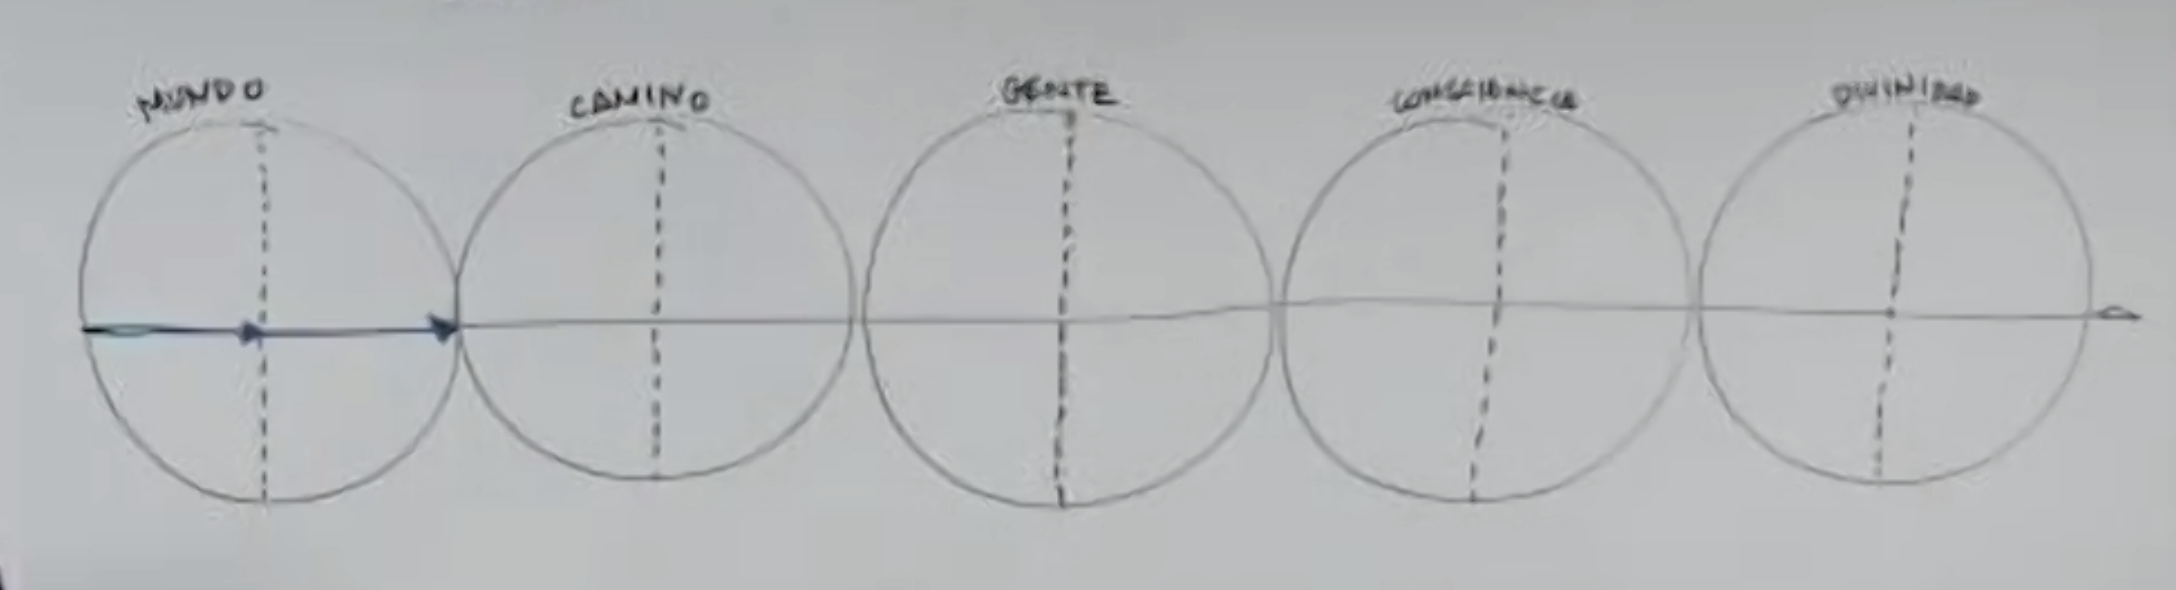 MUNDO
CAMINO
GENTE
CONSCIENCIA
DIVINIDAD